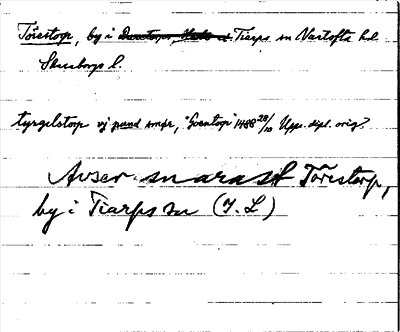 Törestorp, by i Tiarps sn Vartofta hd
Skarborgs l.
tyrgelstorp vj pund smør, "Goentorp" 1488 28/10 Upps. dipl. orig?
Avser snarast Törestorp,
by i Tiarps sn (I. L)